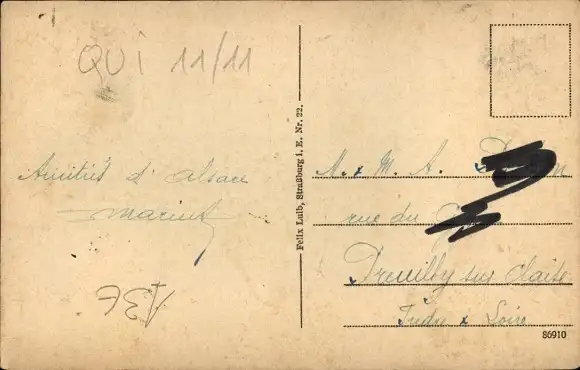 QUI 11/11
Amitiés d'Alsace
A3E
Felix Luib, Straßburg i. E. Nr. 22.
M. x M. A.
rue du
Preuilly sur Claise
Indre x Loire
86910